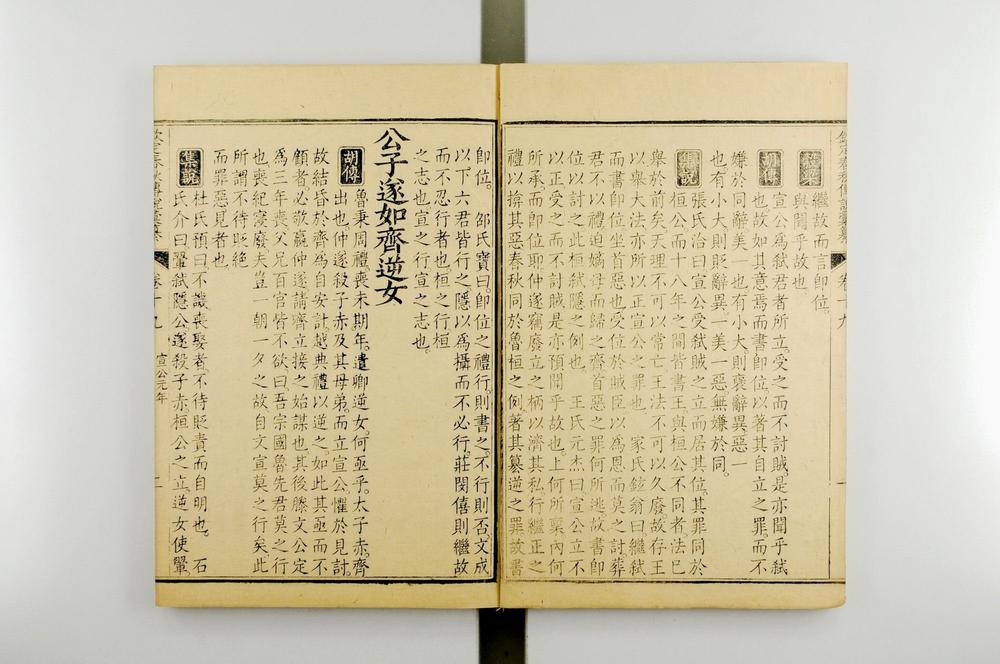 穀梁
繼故而言卽位
與聞乎故也
胡傳
宣公爲弑君者所立受之而不討賊。是亦聞乎弑
也故如其意焉而書卽位以著其自立之罪。而不
嫌於同辭美一也有小大則褒辭異惡一
也有小大則貶辭異一美一惡無嫌於同。
集說
張氏洽曰宣公受弑賊之立而居其位。其罪同於
桓公而十八年之間皆書王與桓公不同者法已
舉於前矣天理不可以常亡王法不可以久廢故存王
以舉大法亦所以正宣公之罪也。 家氏鉉翁曰繼弑
而書卽位坐首惡也受位於賊臣以爲恩而莫之討。葬
君不以禮迫嫡母而歸之齊首惡之罪何所逃故書卽
位以討之此桓弑隱之例也。 王氏元杰曰宣公立不
以正受之而不討賊是亦預聞乎故也。上何所稟內何
所承而卽位耶仲遂竊廢立之柄以濟其私行繼正之
禮以揜其惡春秋同於魯桓之例。著其簒逆之罪故書
卽位。 邵氏寶曰。卽位之禮行。則書之。不行則否。文成
以下六君皆行之隱以爲攝而不必行。莊閔僖則繼故
而不忍行者也桓之行桓
之志也宣之行宣之志也。
公子遂如齊逆女
胡傳
魯秉周禮喪未期年。遣卿逆女。何亟乎。太子赤。齊
出也。仲遂殺子赤及其母弟。而立宣公。懼於見討。
故結昏於齊爲自安計。越典禮以逆之。如此其亟而不
顧者必敬嬴仲遂請齊立接之始謀也其後滕文公定
爲三年喪父兄百官皆不欲曰吾宗國魯先君莫之行
也喪紀寖廢夫豈一朝一夕之故自文宣莫之行矣此
所謂不待貶絕
而罪惡見者也。
集說
杜氏預曰不譏喪娶者不待貶責而自明也。 石
氏介曰翬弑隱公遂殺子赤。桓公之立。逆女使翬。
卷十九
宣公元年